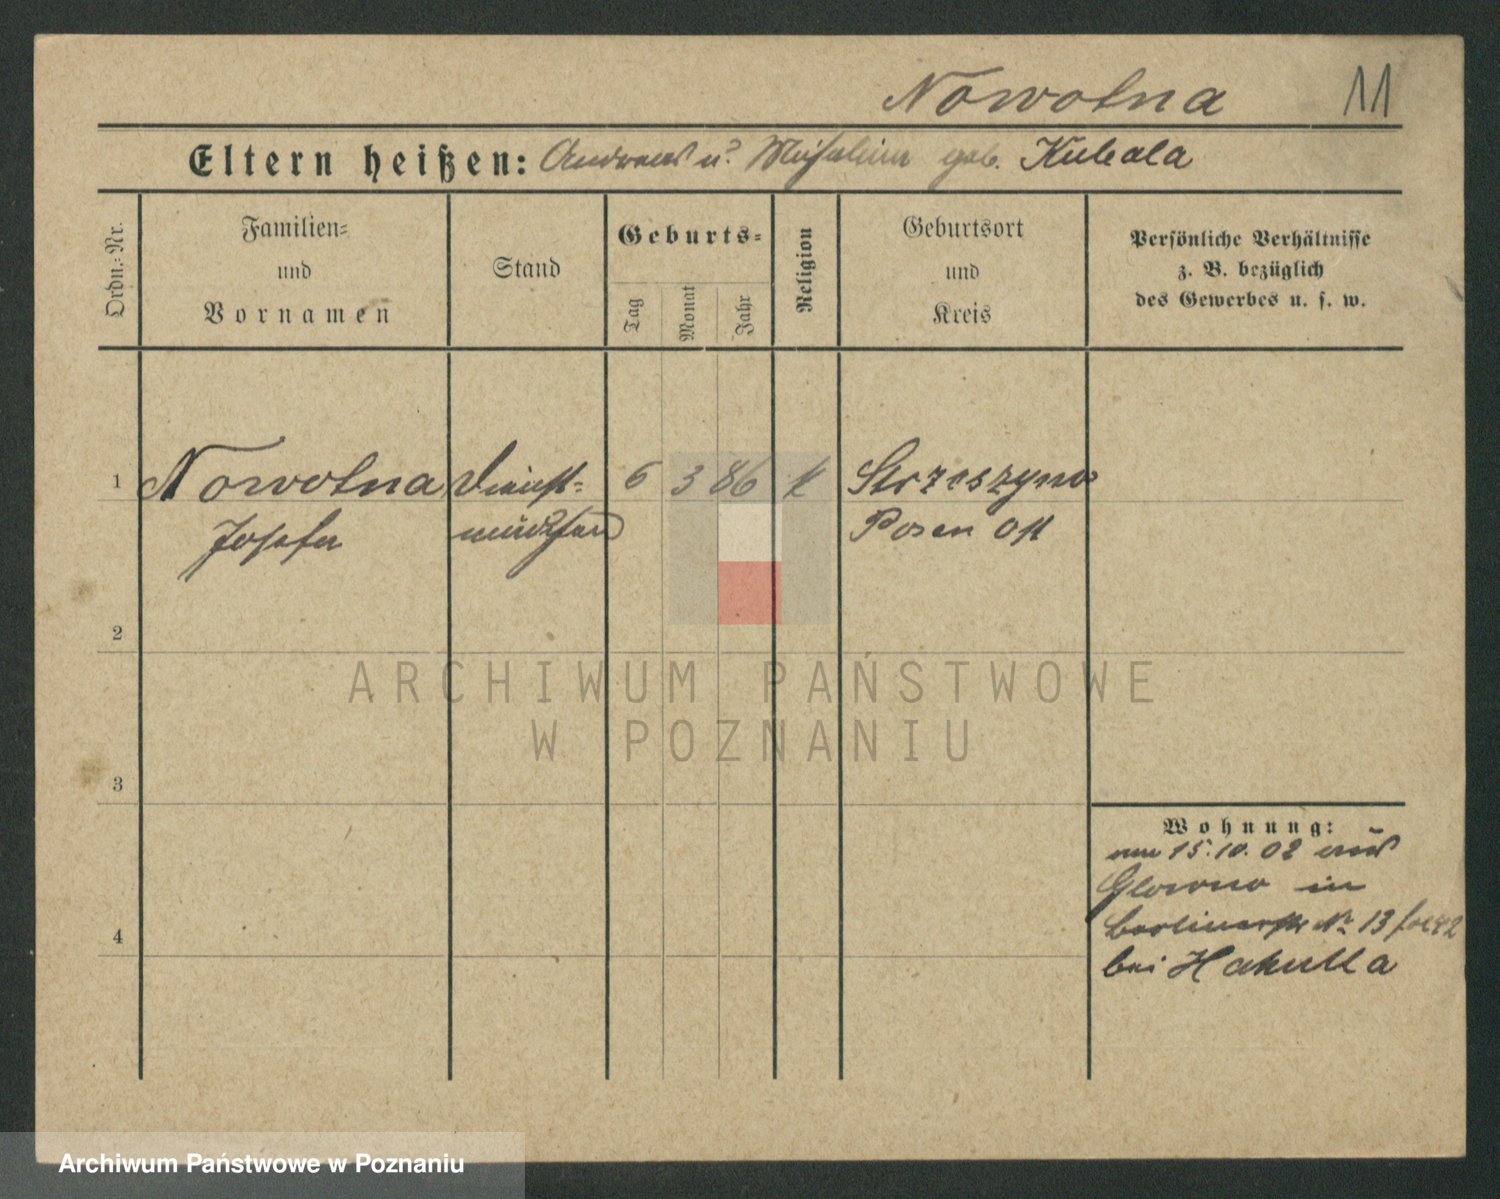 Nowotna 11
Eltern heißen: Andreas u. geb. Kubala
Ordn.-Nr.
Familien-
und
Vornamen
Stand
Geburts-
Tag
Monat
Jahr
Religion
Geburtsort
und
Kreis
Persönliche Verhältnisse
z. B. bezüglich
des Gewerbes u. s. w.
1 Nowotna Dienst- 6 3 86 k Strzeszyno
Josefa mädchen Posen Ost
2
ARCHIWUM PAŃSTWOWE
W POZNANIU
3
Wohnung:
am 15.10.02 aus
Glowno in
Berlinerstr Nr 13
4
bei Hakulla
Archiwum Państwowe w Poznaniu